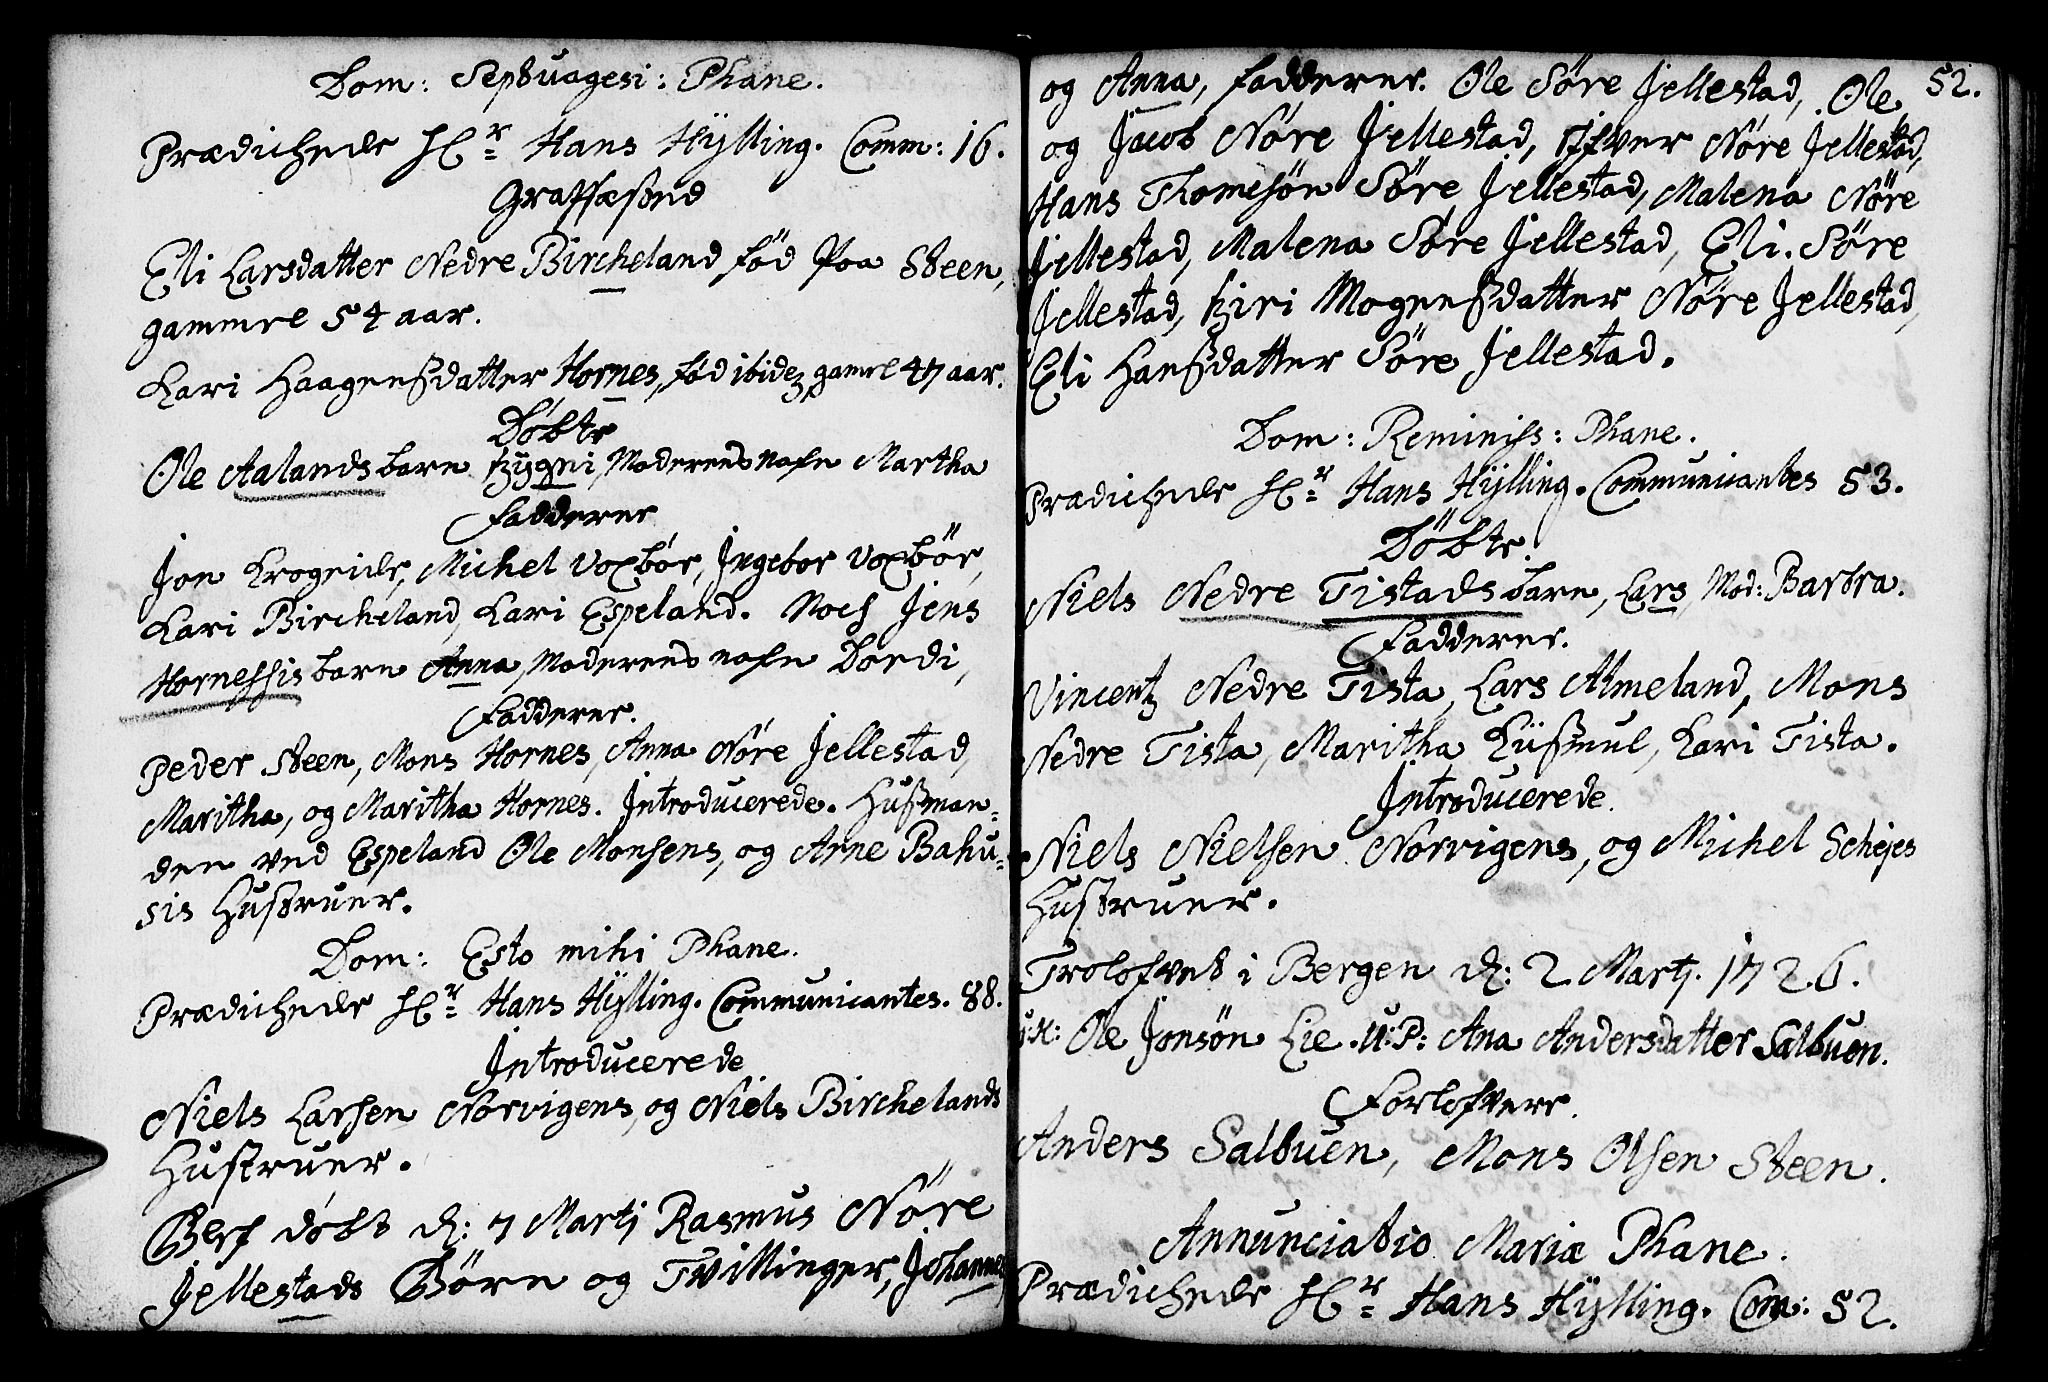 Dom: Septuagesi: Phane.
Prædichede Hr Hans Hÿlling. Comm: 16.
Graffæsted
Eli Larsdatter Nedre Bircheland fød paa Steen,
gammel 54 aar.
Kari Haagensdatter Hornes, fød ibidem gamel 47 aar.
Døbte
Ole Aalands barn Sygni, Moderens nafn Martha
Fadderer
Jon Krogeide, Michel Voxbór, Ingebor Voxbör,
Kari Bircheland, Kari Espeland. Noch Jens
Hornessis barn Anna, Moderens nafn Dordi,
Fadderer.
Peder Steen, Mons Hornes, Anna Nóre Jellestad,
Maritha, og Maritha Hornes. Introducerede. Husman-
den ved Espeland Ole Monsens, og Arne Bahu-
sis Hustruer.
Dom: Esto mihi Phane.
Prædichede Hr Hans Hÿlling. Communicantes. 88.
Introducerede
Niels Larsen Norvigens, og Niels Birchelands
Hustruer.
Blef døbt d: 7 Martj Rasmus Nóre
Jellestads Børn og Tvillinger, Johannes
52.
og Anna, Fadderer. Ole Søre Jellestad, Ole
og Jacob Nøre Jellestad, Ifver Nøre Jellestad,
Hans Thomesøn Søre Jellestad, Malena Nøre
Jellestad, Malena Søre Jellestad, Eli Søre
Jellestad, Siri Mogensdatter Nøre Jellestad,
Eli Hansdatter Søre Jellestad.
Dom: Reminiss: Phane.
Prædichede Hr Hans Hÿlling. Communicantes 53.
Døbte.
Niels Nedre Tistads barn, Lars, Mod: Barbra.
Fadderer.
Vincentz Nedre Tista, Lars Almeland, Mons
Nedre Tista, Maritha, Kari Tista.
Introducerede.
Niels Nielsen Norvigens, og Michel Schejes
Hustruer.
Trolofved i Bergen d: 2 Martj. 1726.
Ole Jonsøn Lie. U:P: Ana Andersdatter Salbuen.
Forlofvere.
Anders Salbuen, Mons Olsen Steen.
Annunciatio Mariæ Phane.
Prædichede Hr Hans Hÿlling. Com: 52.